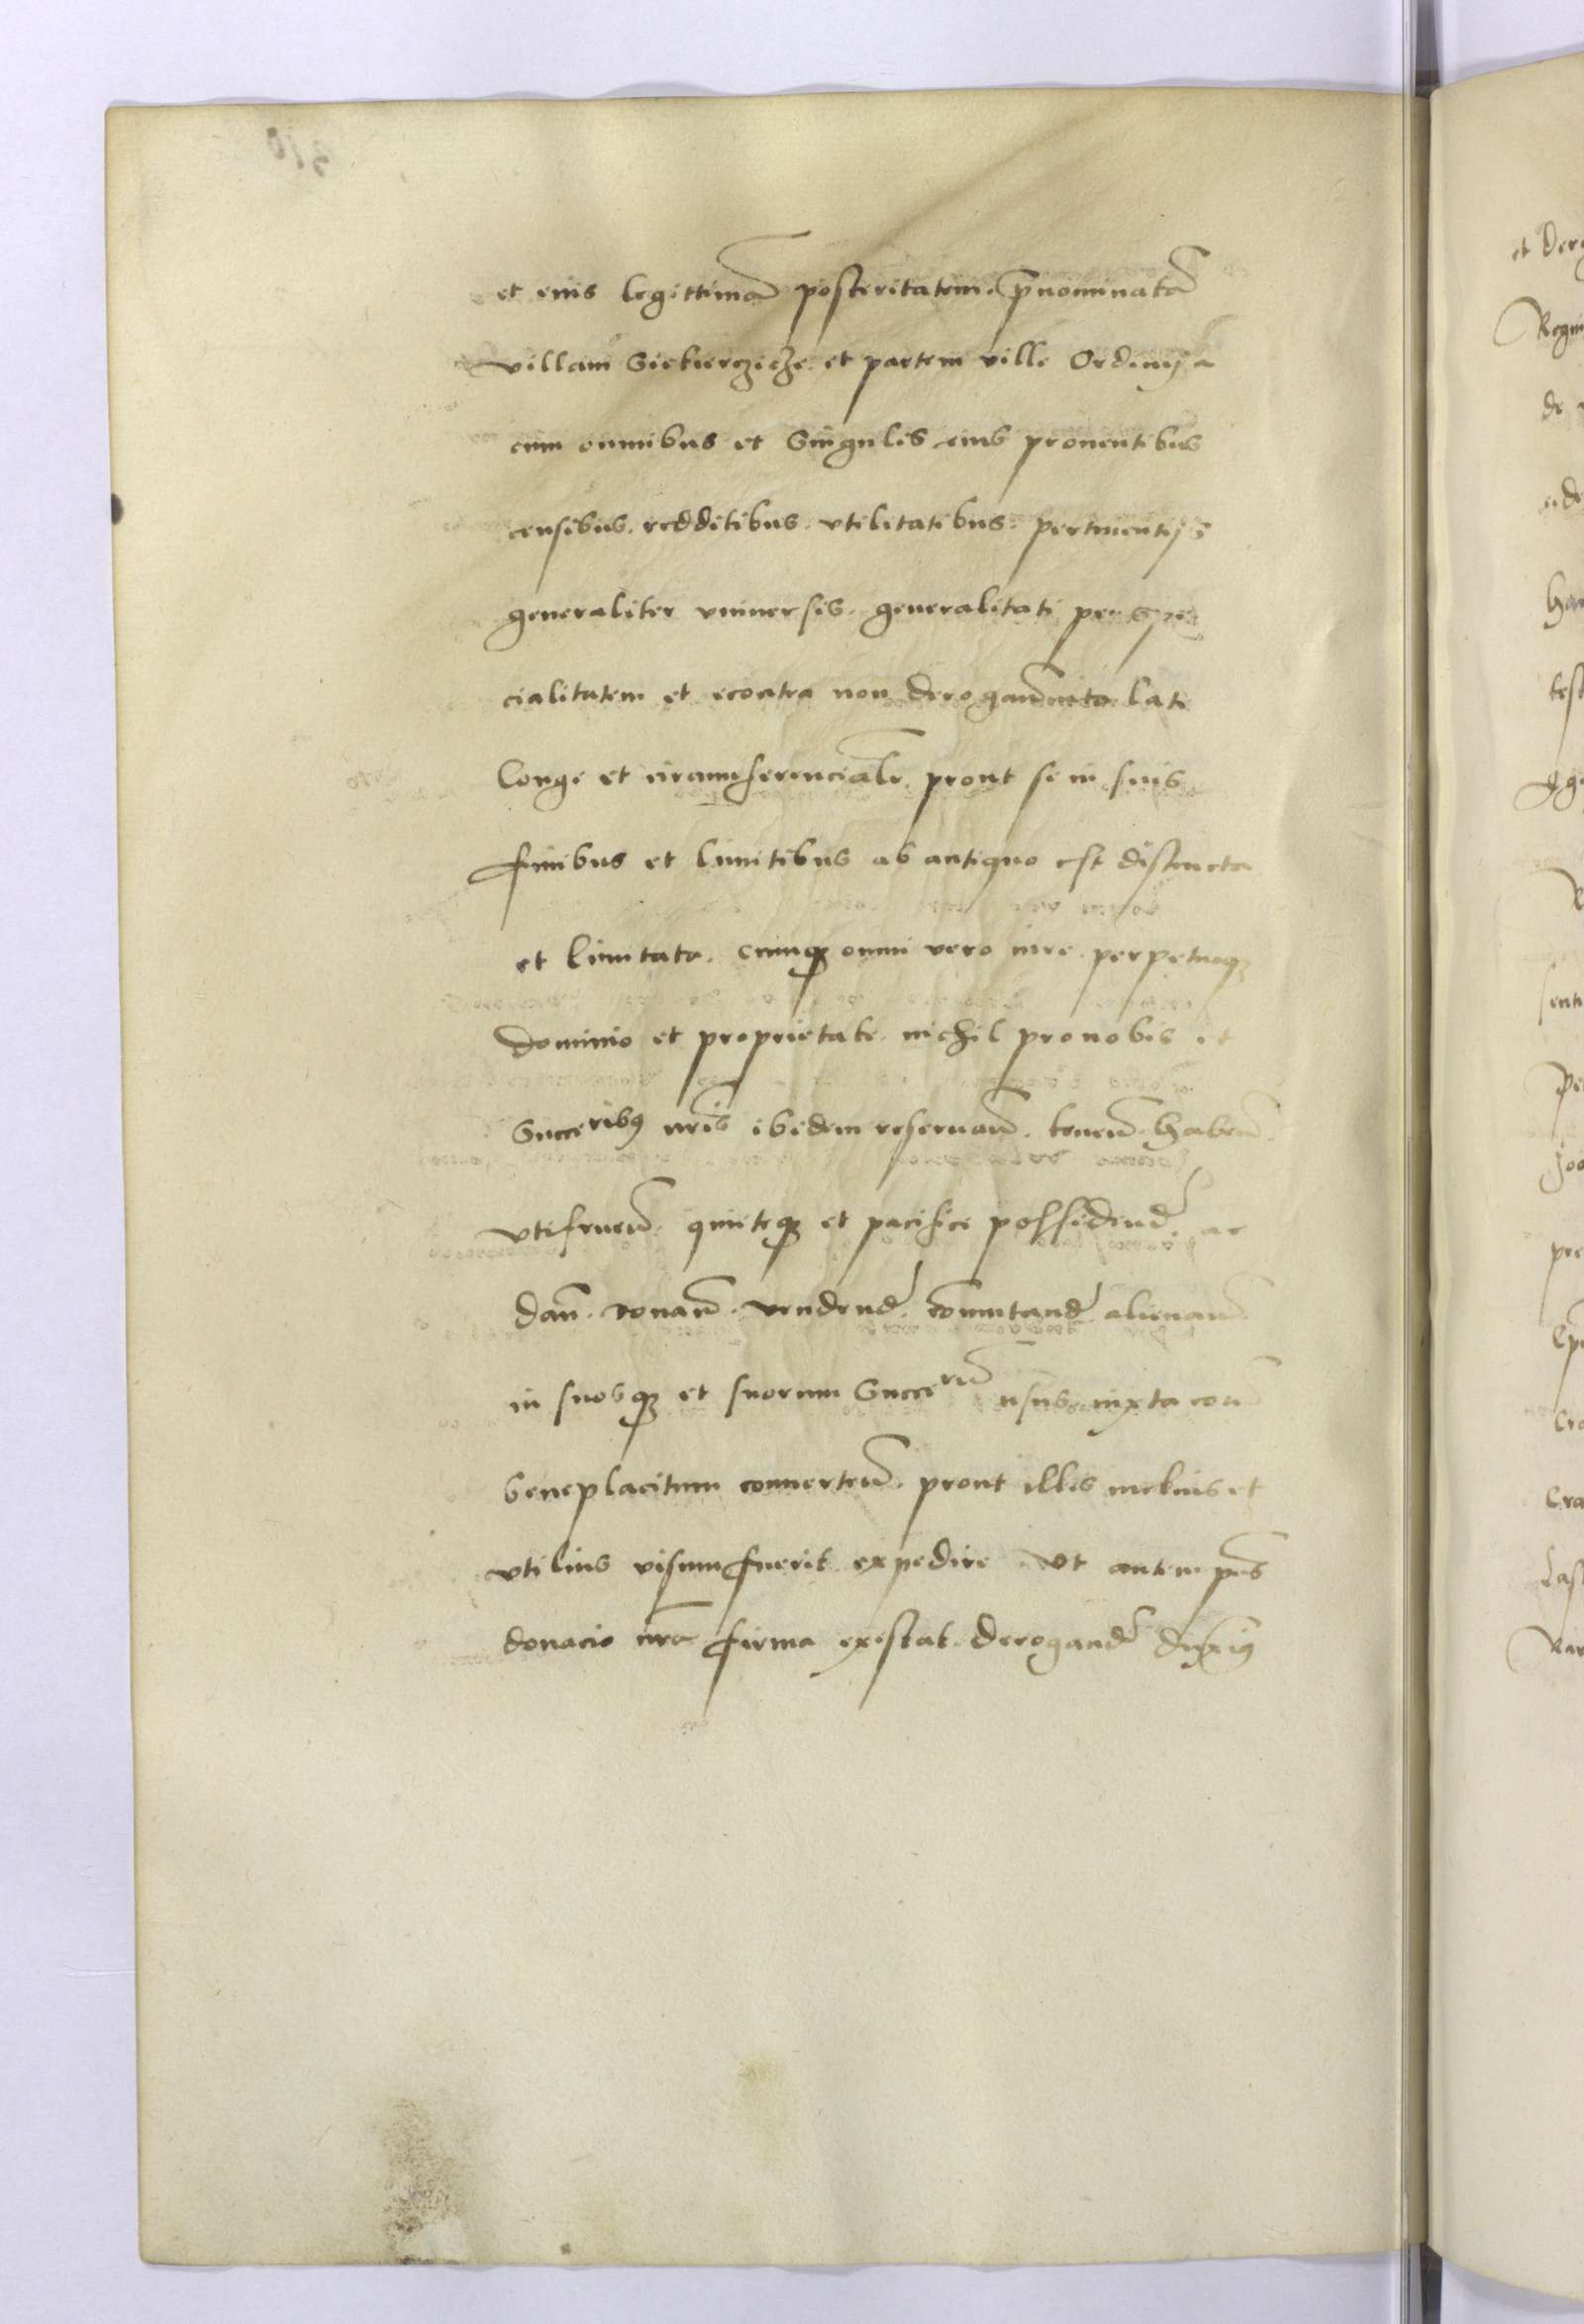 et eius legittimā posteritatem. p̄nominatā
villam Siekierczicze et partem ville Ordinija
cum omnibus et singulis eius prouentibus
censibus. redditibus. vtilitatibus. pertinentijs
generaliter vniuersis. generalitati per spe
cialitatem et econtra non derogan̄ ita late
longe et circumferencialr̄. prout se in suis
finibus et limitibus ab antiquo est distincta
et limitata. cumqȝ omni vero iure perpetuoqȝ
dominio et proprietate. nichil pro nobis et
Succeribȝ nr̄is ibidem reseruan̄. tenen̄. haben̄.
vtifruen̄. quieteqȝ et pacifice possidend̄. ac
dan̄. donan̄. vendend̄. com̄utand̄ alienan̄.
in suosqȝ et suorum Succerū usus iuxta eorū
beneplacitum conuerten̄. prout illis melius et
vtilius visum fuerit expedire. Vt autem pn̄s
donacio nr̄a firma existat. derogand̄
et
310